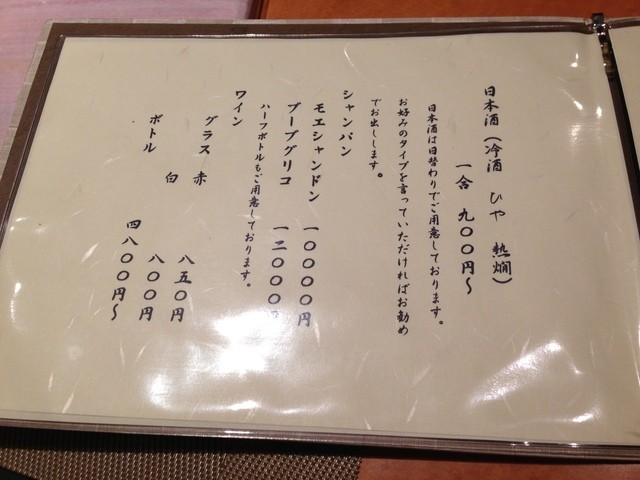 日本酒（冷酒　ひや　熱燗）
一合　九〇〇円～
日本酒は日替わりでご用意しております。
お好みのタイプを言っていただければお勧め
でお出しします。
シャンパン
モエシャンドン　一〇〇〇〇円
ブーブグリコ　一二〇〇〇円
ハーフボトルもご用意しております。
ワイン
グラス　赤　八五〇円
白　八〇〇円
ボトル　四八〇〇円～